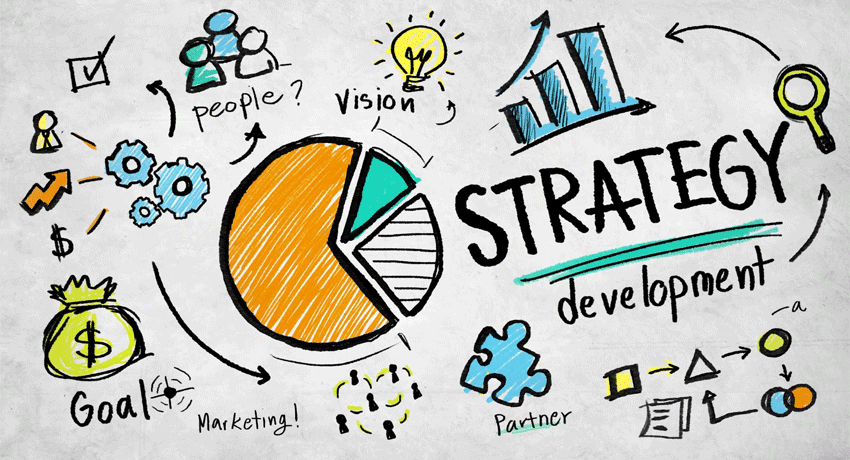 people?
Vision
STRATEGY
development
$
$
Goal
Marketing!
Partner
a